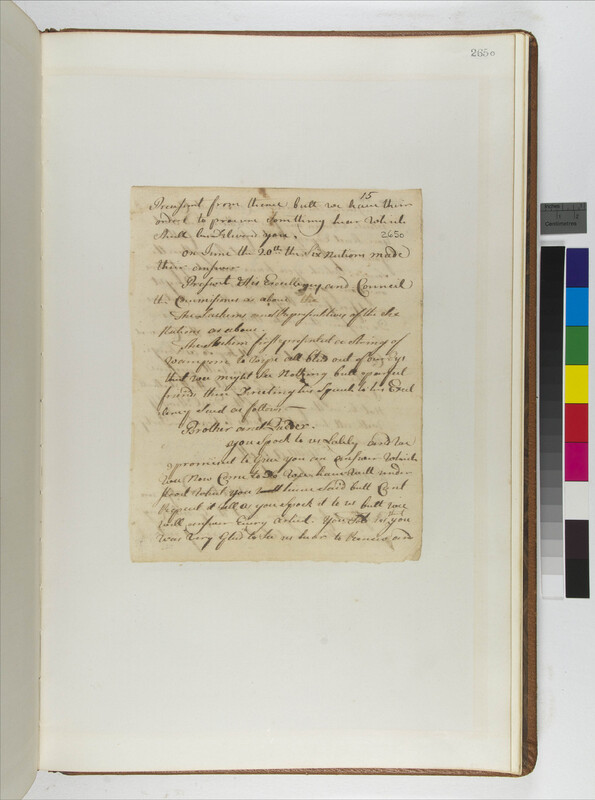 2650
15
Pressent from thence butt we have thier
orders to procure Something hear Which
Shall be delivered you.
2650
on June the 20th the Six Nations made
their answer
Present His Excellency and Council
the Commissioners as above
The Sachims and Representitives of the Six
Nations as above.
The Sachim first presented a string of
Wampum to wipe all blod out of our eys
that we might See Nothing butt a joyful
friends then Directing his Speach to his Excel
lency Said as follows
Brother and Father.
you Spock to us Lately and we
promised to Give you an answer Which
We Now Come to do We have Well under
stood What you have Said butt Cant
Repeat it all as you Spock it to us butt we
will answer Every Articl. You told us that you
was Very Glad to See us hear to Renew and